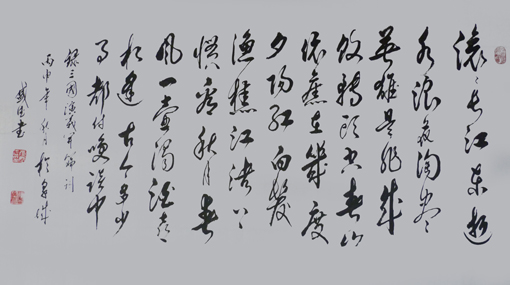 滚々长江东逝
水浪花淘尽
英雄是非成
败转头空青山
依旧在几度
夕阳红白发
渔樵江渚上
惯看秋月春
风一壶浊酒喜
相逢古今多少
事都付笑谈中
录三国演义开篇词
丙申年秋月於京城
书